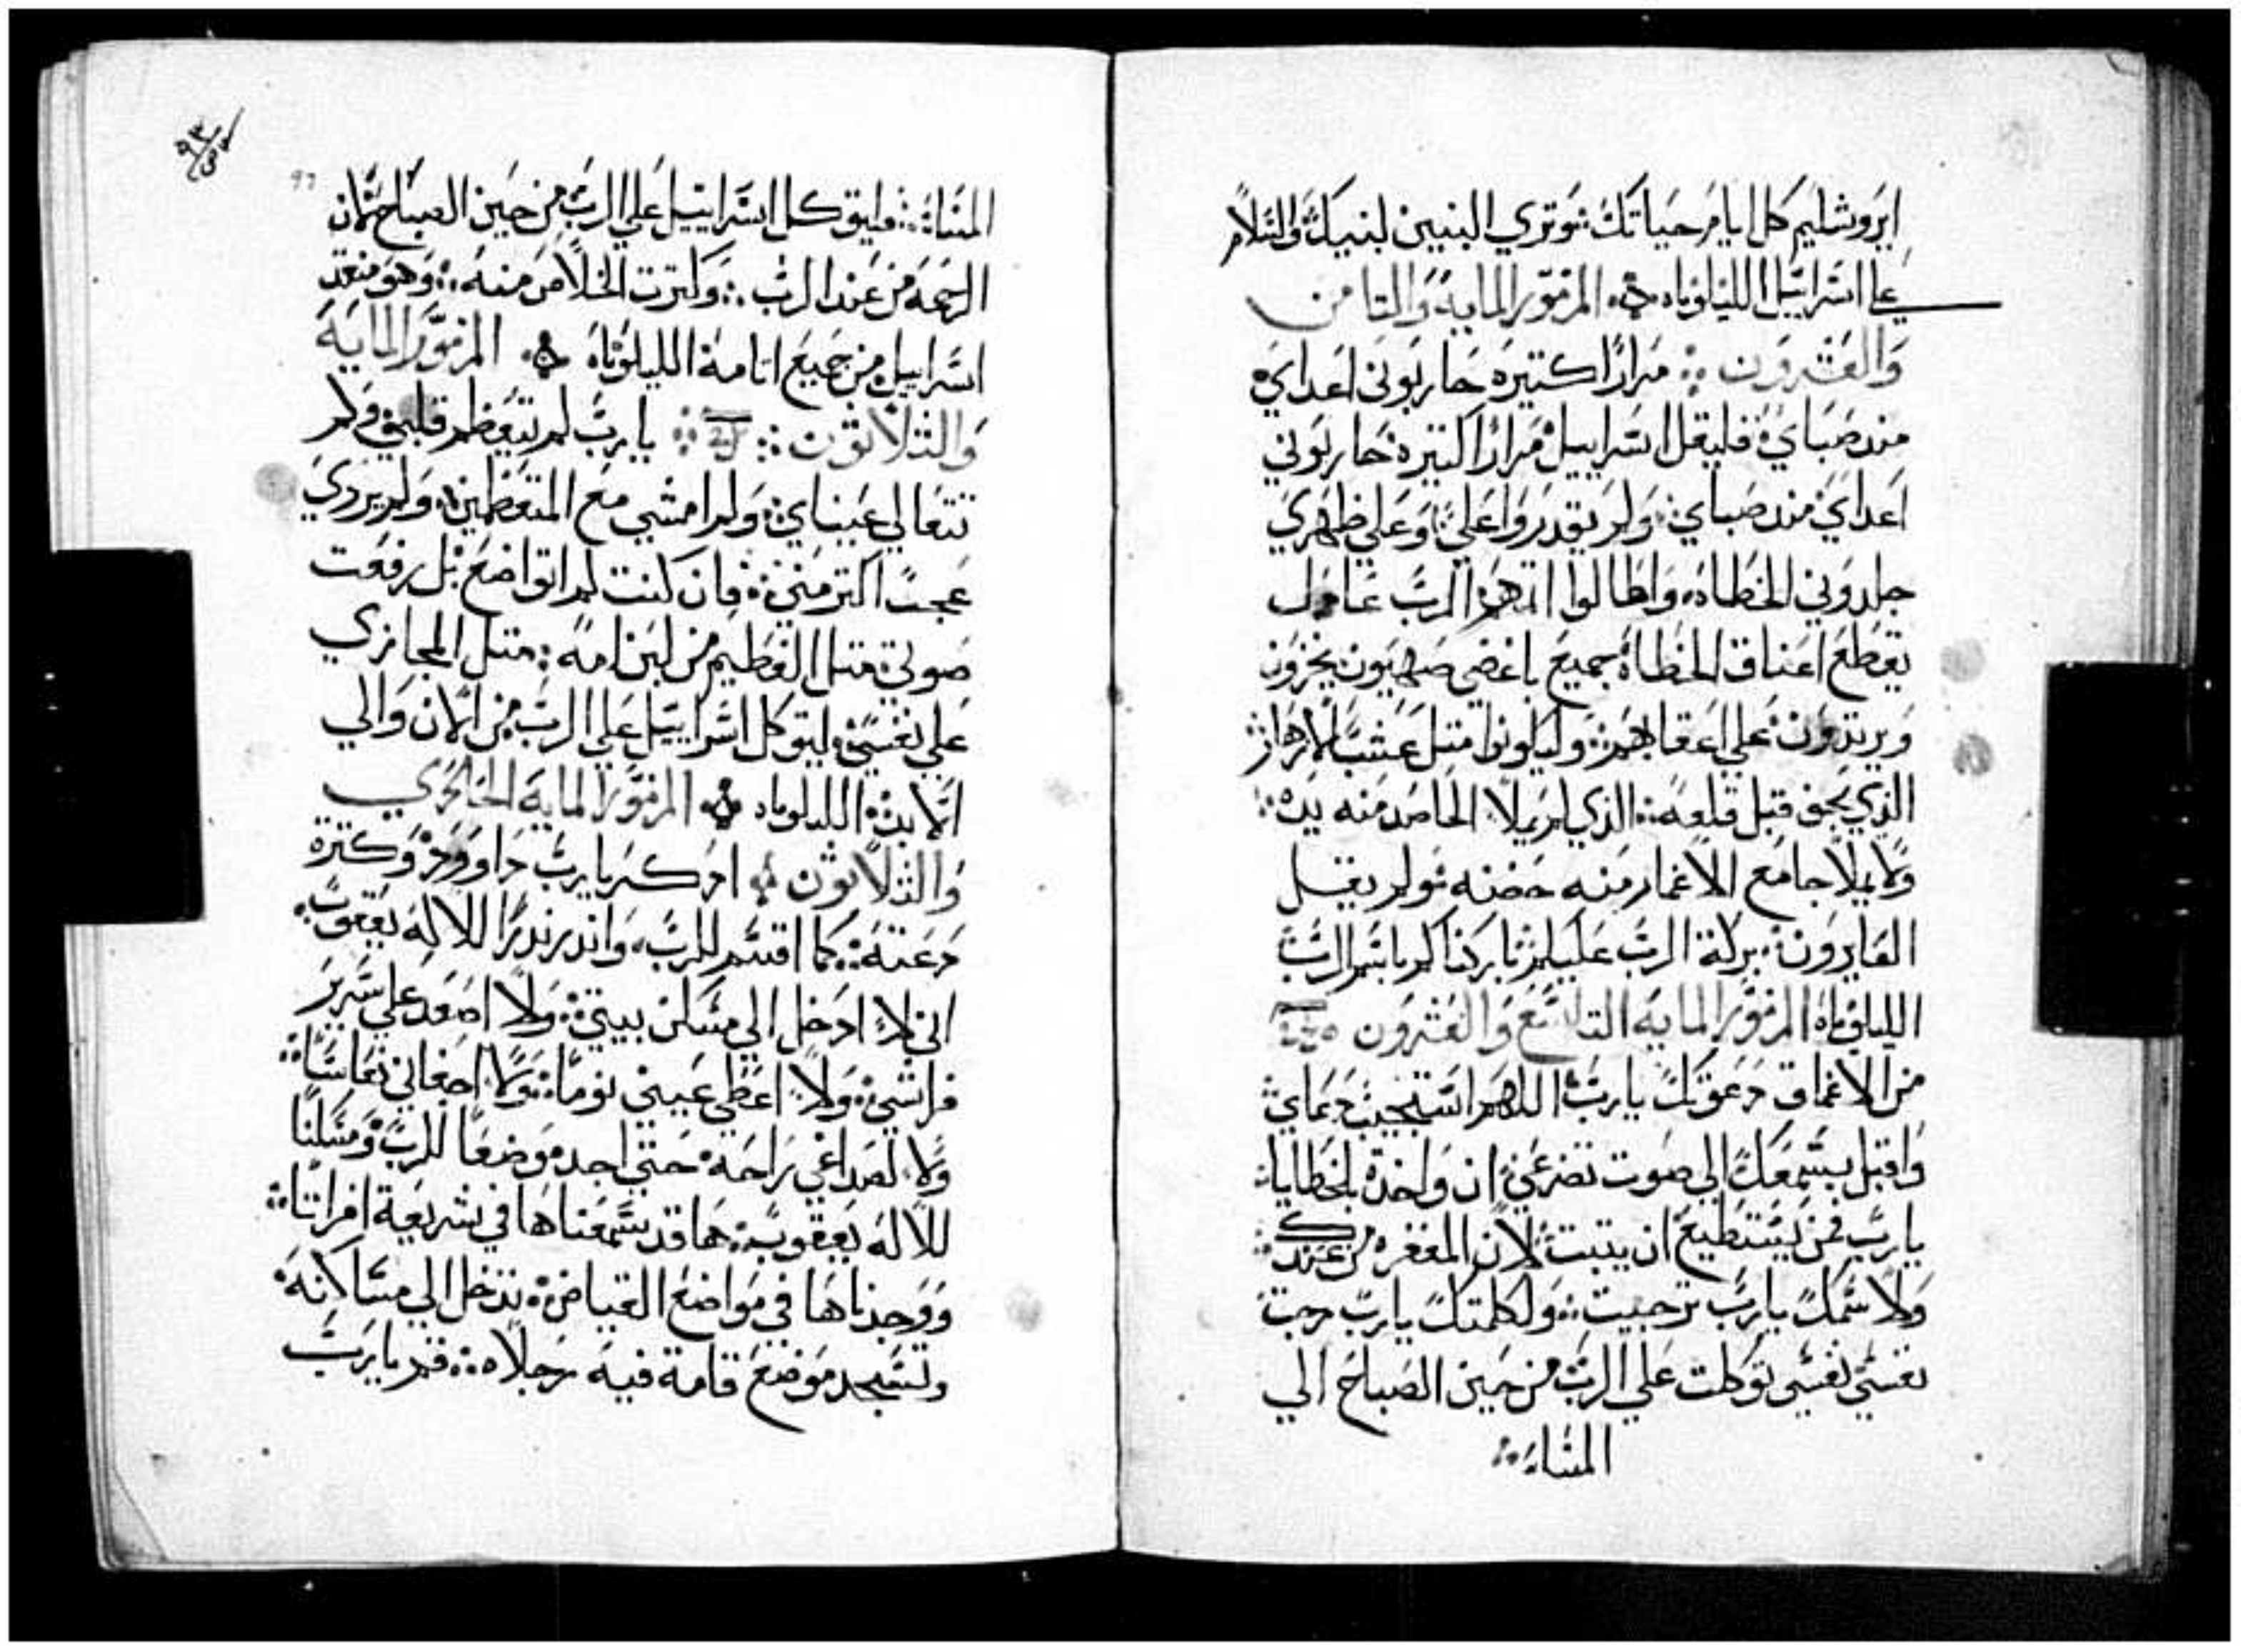 ايروشليم كل ايام حياتك وتري البنين لبنيك والسلام
علي اسراييل الليلوياه المزمور المايه والتامن
والعشرون مرارًا كتيره حاربوني اعداي
مند صباي فليقل اسراييل مرارًا كتيره حاربوني
اعداي مند صباي ولم يقدروا علي وعلي ظهري
جلدوني الخطاه واطالوا اتمهم الرب عادل
يقطع اعناق الخطاه جميع باغضي صهيون يخزون
ويرتدون علي اعقابهم وليكونوا متل عشب
الذي يجف قبل قلعه الذي لم يملا الحاصد منه يده
ولا يملا جامع الاغمار منه حضنه ولم يقل
العابرون بركة الرب عليكم باركناكم باسم الرب
الليلوياه المزمور المايه التاسع والعشرون
من الاعماق دعوتك يارب اللهم استجيب دعاي
واقبل بسمعك الي صوت تضرعي ان واخدة بالخطايا
يارب فمن يستطيع ان يتبت لان المغفره من عندك
ولاسمك يارب ترجيت ولكلمتك يارب رجت
نفسي نفسي توكلت علي الرب من حين الصباح الي
المساء
٩٣
97
المساء فليتوكل اسراييل علي الرب من حين الصباح لان
الرحمة من عند الرب وكترت الخلاص منه وهو منقد
اسراييل من جميع اتامة الليلوياه المزمور المايه
والتلاتون يارب لم يتعظم قلبي ولم
تتعالي عيناي ولم امشي مع المتعظمين ولم
عجب اكتر مني فان كنت لم اتواضع بل رفعت
صوتي متل الفطيم من لبن امه متل المجازي
علي نفسي ليتوكل اسراييل علي الرب من الان والي
الابد الليلوياه المزمور المايه الحادي
والتلاتون ادكر يارب داوود وكترة
دعته كما اقسم للرب واندر ندرًا للاله يعقوب
اني لا ادخل الي مسكن بيتي ولا اصعد علي سرير
فراشي ولا اعطي عيني نومًا ولا اجفاني نعاسًا
ولا لصداغي راحة حتي اجد موضعًا للرب ومسكنًا
للاله يعقوب ها قد سمعناها في شريعة افراتا
ووجدناها في مواضع الغياض ندخل الي مساكنه
ونسجد موضع قامة فيه رجلاه قم يارب